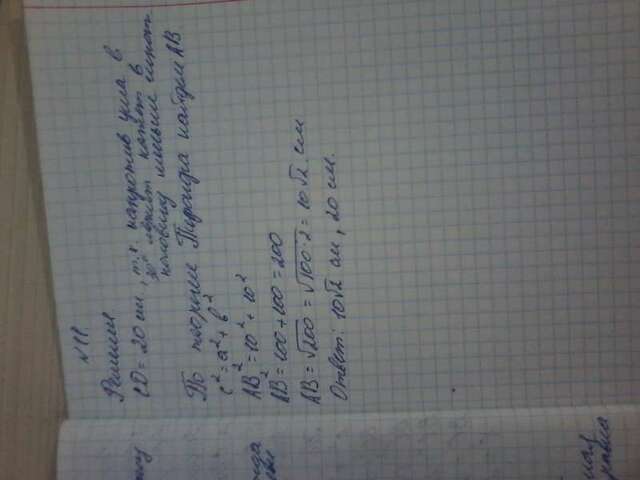 N 11
Решение
CD = 20 см, т.к. напротив угла в
30° лежит катет в
половину меньше гипот.
По теореме Пифагора найдем AB
c² = a² + b²
AB² = 10² + 10²
AB² = 100 + 100 = 200
AB = √200 = √100·2 = 10√2 см
Ответ: 10√2 см, 20 см.